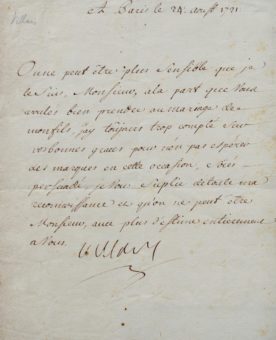 Villars
A Paris le 24 aoust 1721
On ne peut être plus sensible que je
le suis, Monsieur, a la part que vous
voulés bien prendre au mariage de
mon fils, j'ay toujours trop compté sur
vos bonnes graces pour n'en pas esperer
des marques en cette occasion, soies
persuadé je vous suplie de toute ma
reconnoissance et qu'on ne peut être
Monsieur, avec plus d'estime entierement
a Vous.